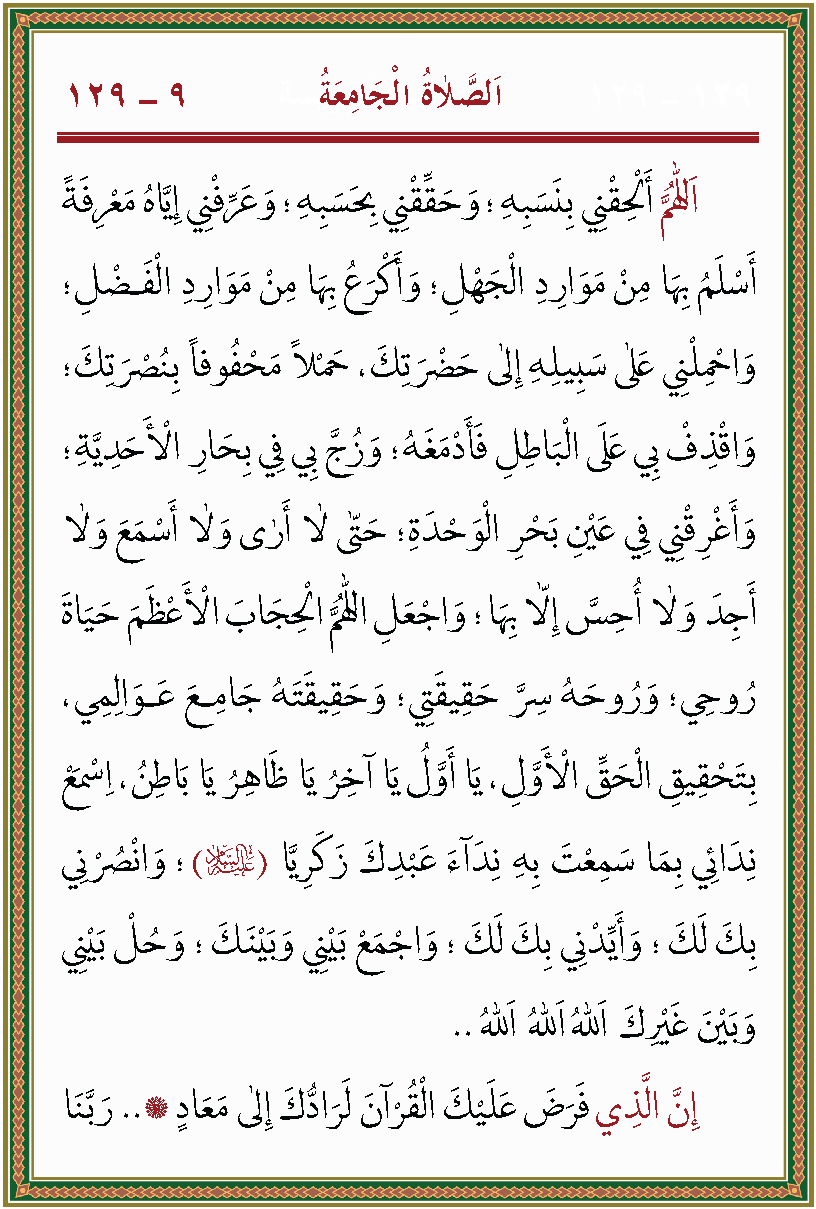 اَلصَّلَاةُ الْجَامِعَةُ ٩ - ١٢٩
اَللّٰهُمَّ أَلْحِقْنِي بِنَسَبِهِ ؛ وَحَقِّقْنِي بِحَسَبِهِ ؛ وَعَرِّفْنِي إِيَّاهُ مَعْرِفَةً
أَسْلَمُ بِهَا مِنْ مَوَارِدِ الْجَهْلِ ؛ وَأَكْرَعُ بِهَا مِنْ مَوَارِدِ الْفَـضْلِ ؛
وَاحْمِلْنِي عَلٰى سَبِيلِهِ إِلٰى حَضْرَتِكَ ، حَمْلاً مَحْفُوفاً بِنُصْرَتِكَ ؛
وَاقْذِفْ بِي عَلَى الْبَاطِلِ فَأَدْمَغَهُ ؛ وَزُجَّ بِي فِي بِحَارِ الْأَحَدِيَّةِ ؛
وَأَغْرِقْنِي فِي عَيْنِ بَحْرِ الْوَحْدَةِ ؛ حَتّٰى لَا أَرٰى وَلَا أَسْمَعَ وَلَا
أَجِدَ وَلَا أُحِسَّ إِلَّا بِهَا ؛ وَاجْعَلِ اللّٰهُمَّ الْحِجَابَ الْأَعْظَمَ حَيَاةَ
رُوحِي ؛ وَرُوحَهُ سِرَّ حَقِيقَتِي ؛ وَحَقِيقَتَهُ جَامِـعَ عَـوَالِمِي ،
بِتَحْقِيقِ الْحَقِّ الْأَوَّلِ ، يَا أَوَّلُ يَا آخِرُ يَا ظَاهِرُ يَا بَاطِنُ ، اِسْمَعْ
نِدَائِي بِمَا سَمِعْتَ بِهِ نِدَآءَ عَبْدِكَ زَكَرِيَّا (عَلَيْهِ السَّلَام) ؛ وَانْصُرْنِي
بِكَ لَكَ ؛ وَأَيِّدْنِي بِكَ لَكَ ؛ وَاجْمَعْ بَيْنِي وَبَيْنَكَ ؛ وَحُلْ بَيْنِي
وَبَيْنَ غَيْرِكَ اَللّٰهُ اَللّٰهُ اَللّٰهُ ..
إِنَّ الَّذِي فَرَضَ عَلَيْكَ الْقُرْآنَ لَرَادُّكَ إِلٰى مَعَادٍ ۞ .. رَبَّنَا